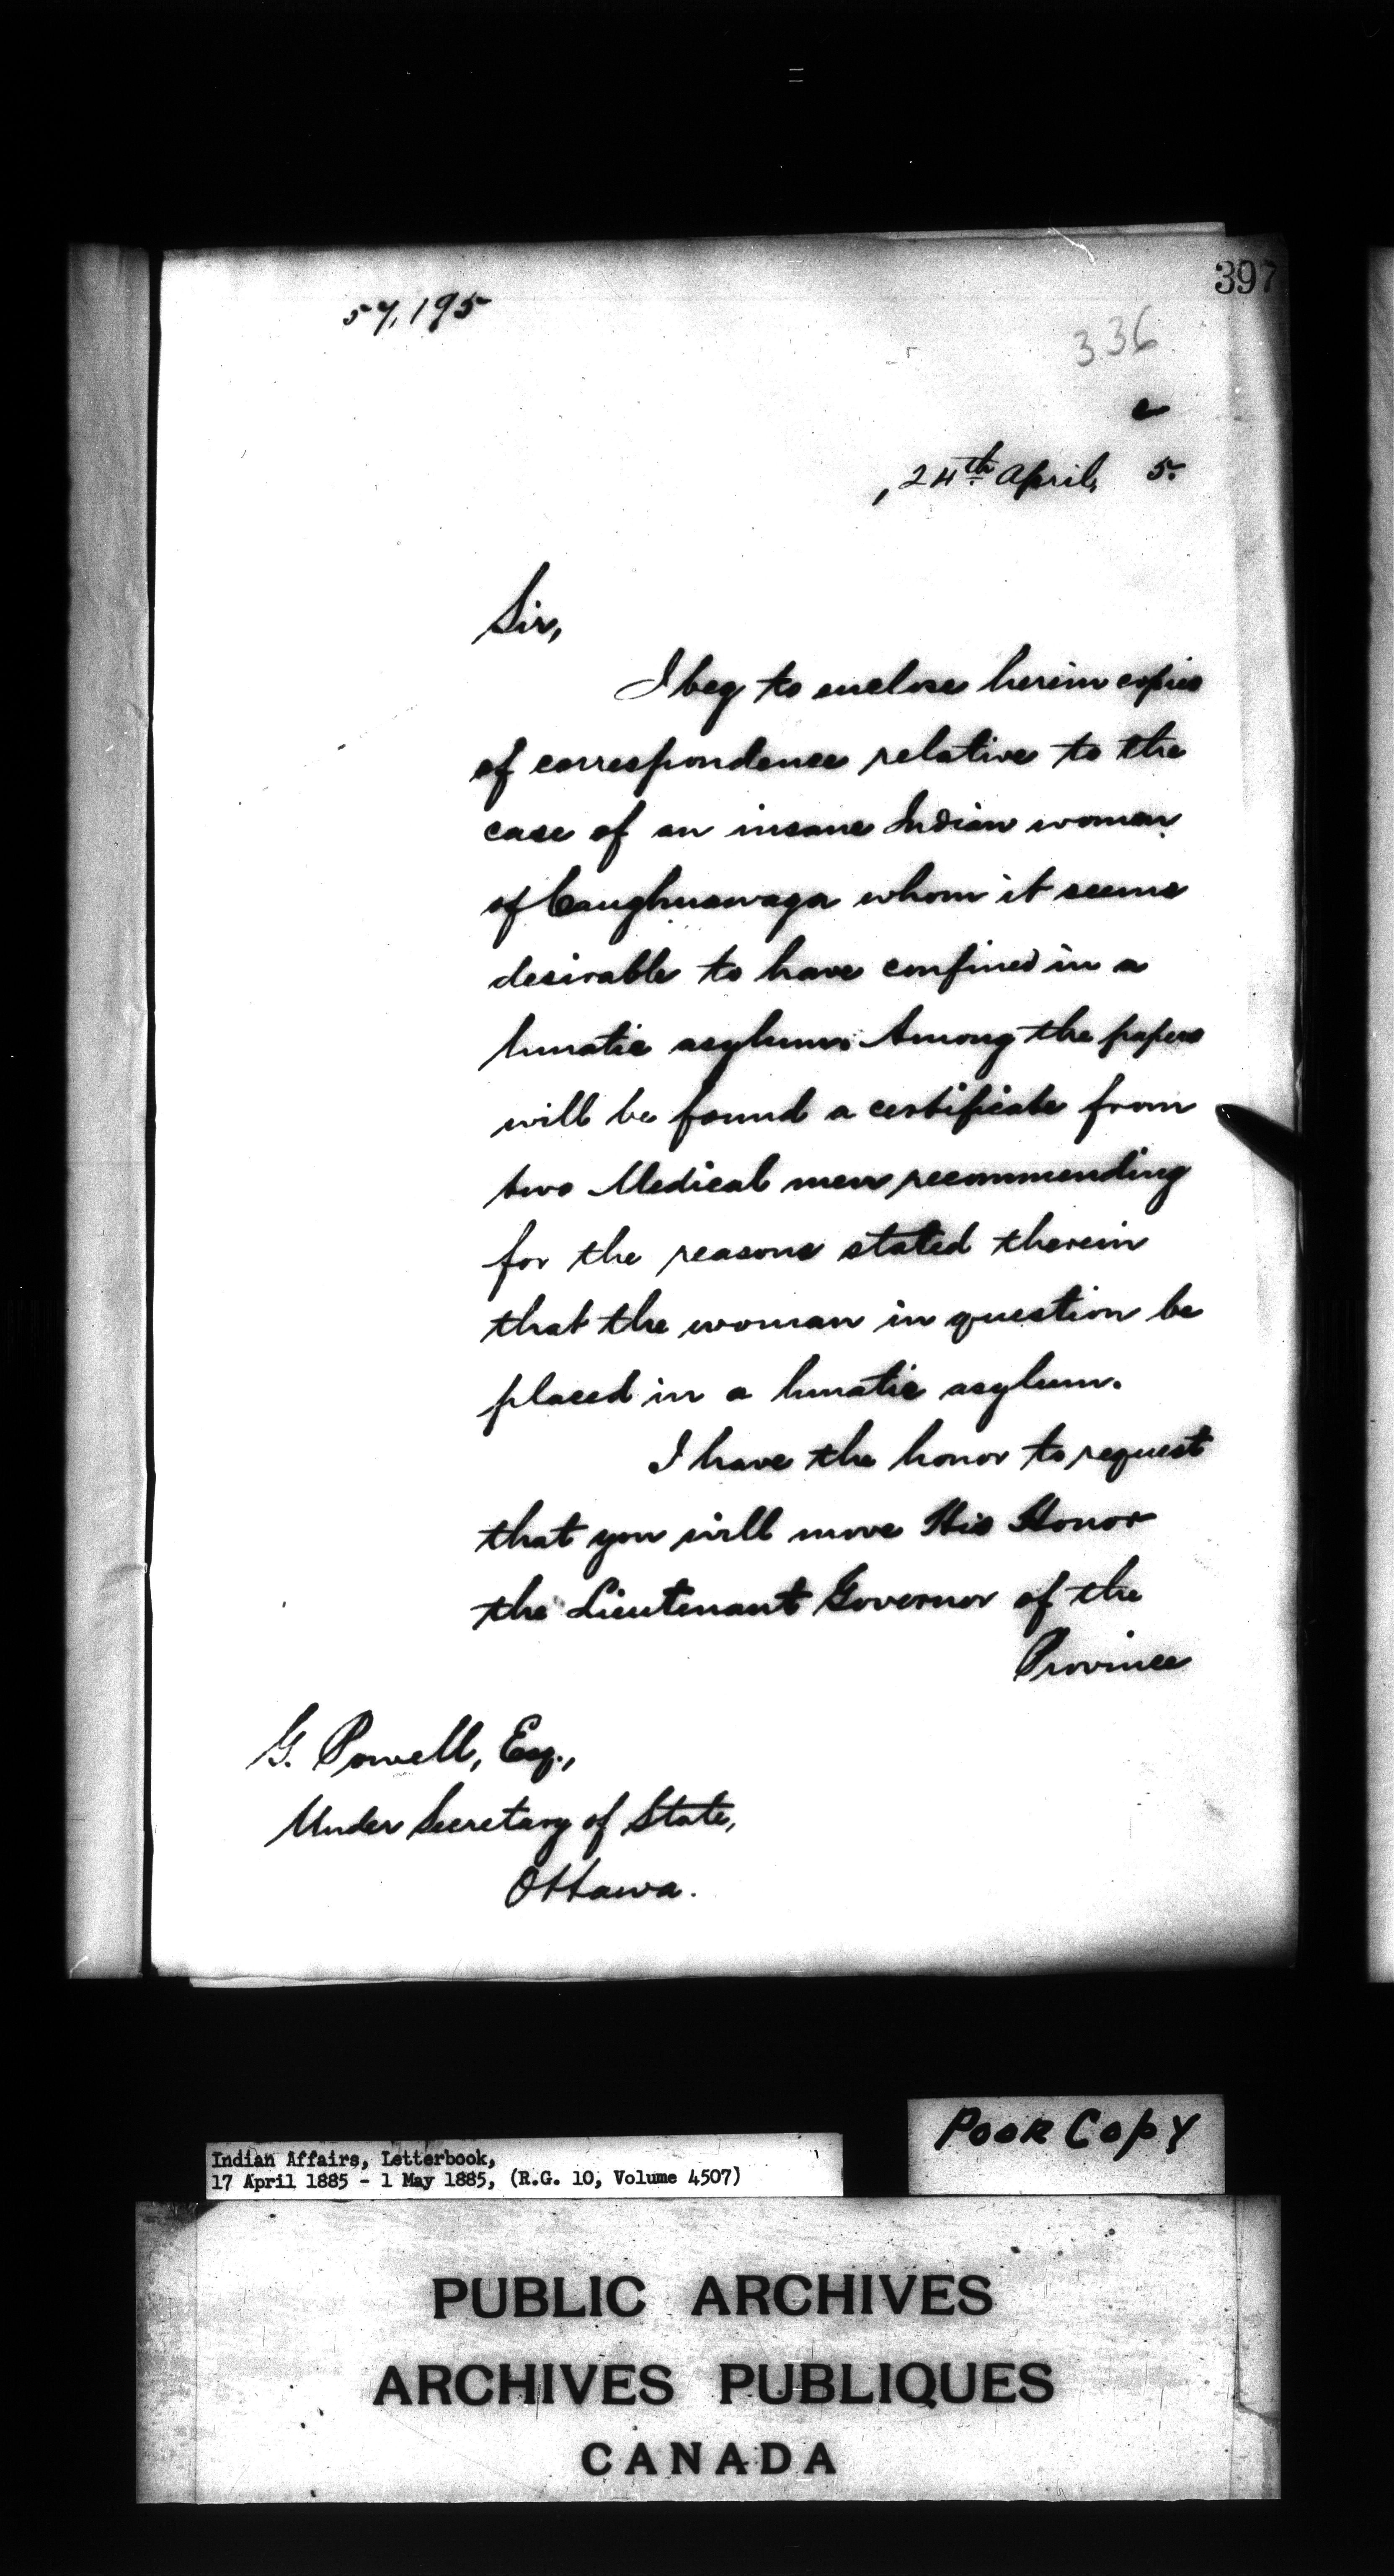 397
57,195
336
e
, 24th April, 5.
Sir,
I beg to enclose herein copies
of correspondence relative to the
case of an insane Indian woman
of Caughnawaga whom it seems
desirable to have confined in a
lunatic asylum. Among the papers
will be found a certificate from
two Medical men recommending
for the reasons stated therein
that the woman in question be
placed in a lunatic asylum.
I have the honor to request
that you will move His Honor
the Lieutenant Governor of the
Province
G. Powell, Esq.,
Under Secretary of State,
Ottawa.
POOR COPY
Indian Affairs, Letterbook,
17 April 1885 - 1 May 1885, (R.G. 10, Volume 4507)
PUBLIC ARCHIVES
ARCHIVES PUBLIQUES
CANADA